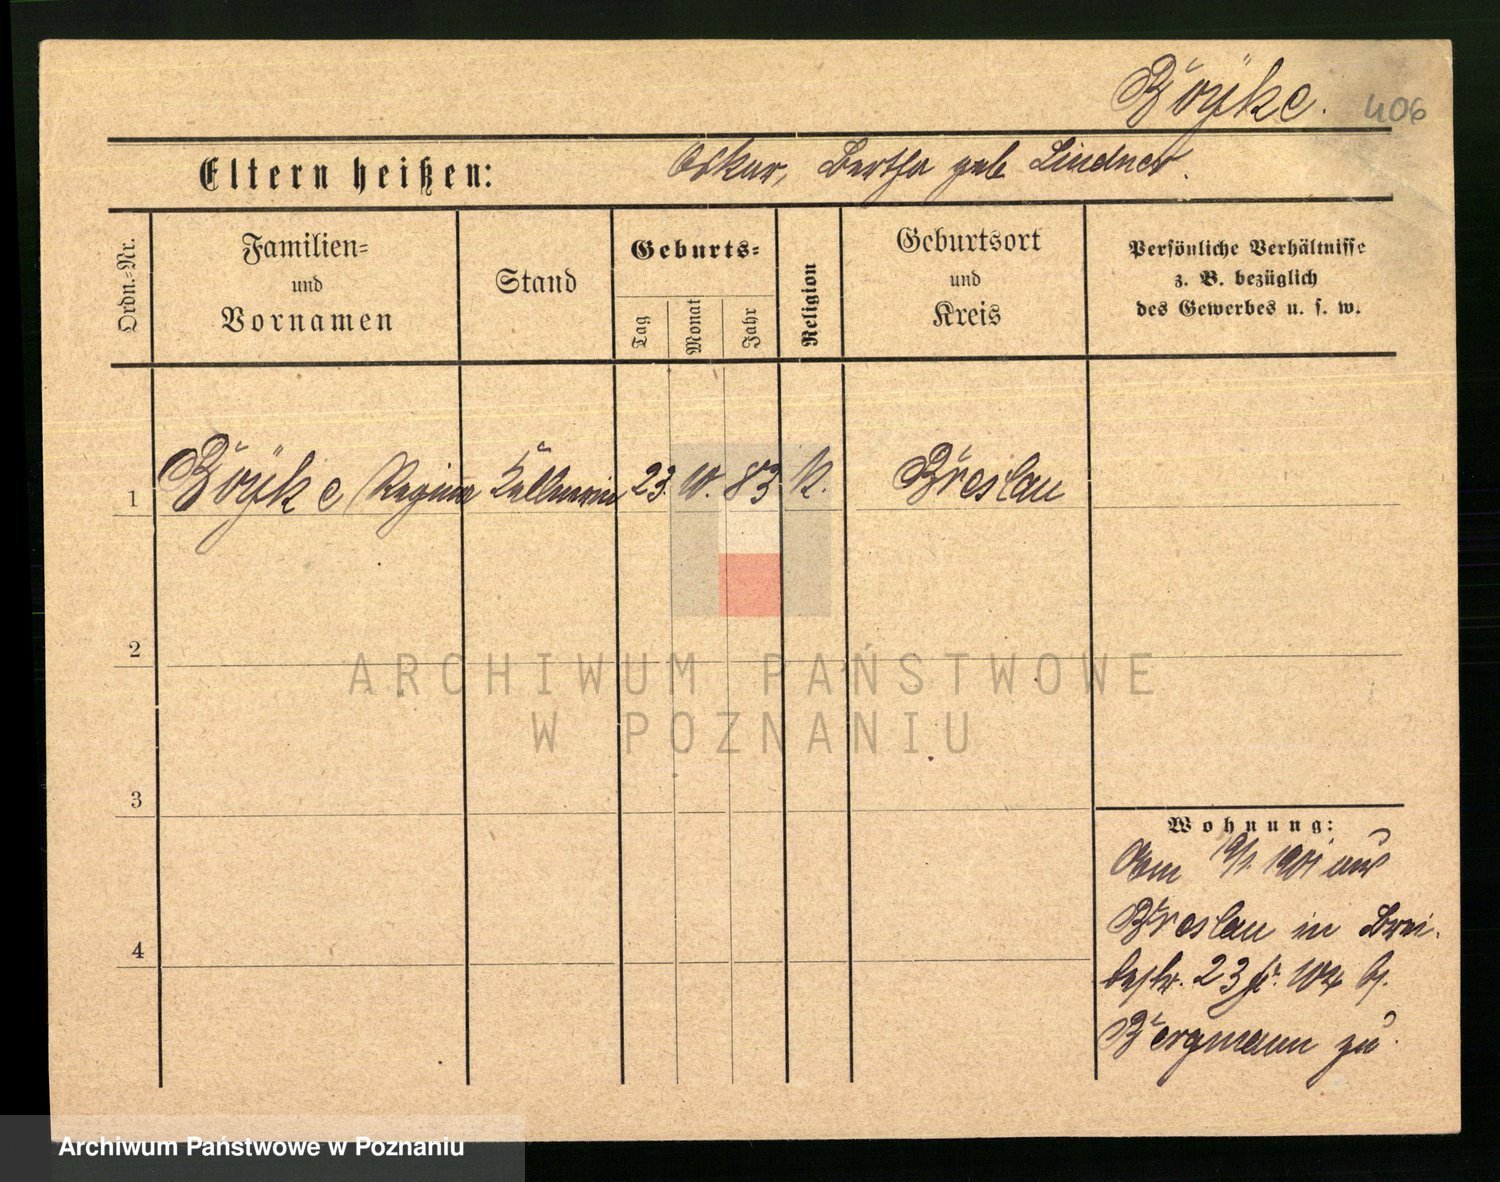 Böÿke.
406
Eltern heißen: Oskar, Bertha geb Lindner.
Ordn.=Nr.
Familien=
und
Vornamen
Stand
Geburts=
Tag
Monat
Jahr
Religion
Geburtsort
und
Kreis
Persönliche Verhältnisse
z. B. bezüglich
des Gewerbes u. s. w.
1 Böÿke Regina Kellnerin 23. 10. 83 K. Breslau
2
ARCHIWUM PAŃSTWOWE
W POZNANIU
3
Wohnung:
Am 19/1. 1901 aus
Breslau in
4
23 b.
Bergmann zu
Archiwum Państwowe w Poznaniu